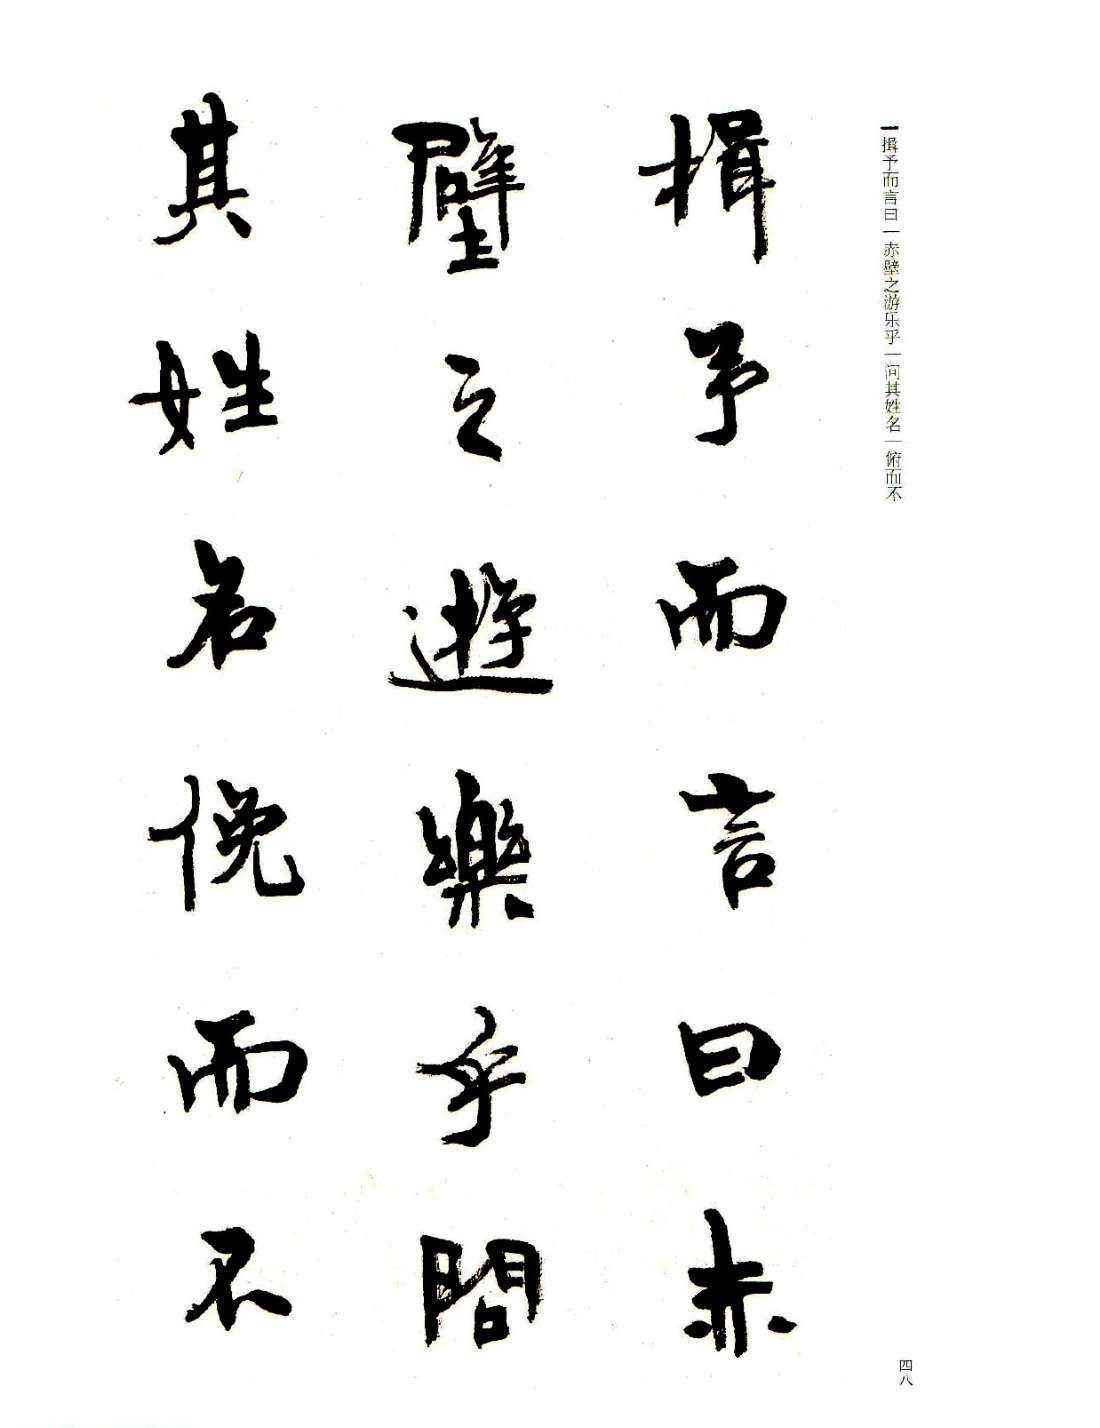 揖予而言曰｜赤壁之游乐乎｜问其姓名｜俯而不
揖予而言曰赤
壁之遊樂乎問
其姓名俛而不
四八